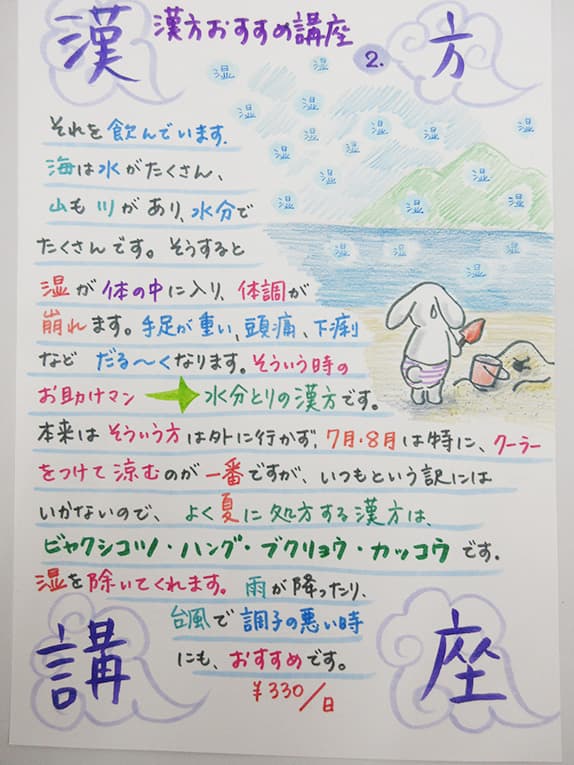 漢方
漢方おすすめ講座
2.
湿 湿 湿 湿 湿 湿 湿 湿 湿 湿 湿 湿 湿 湿 湿 湿
それを飲んでいます.
海は水がたくさん、
山も川があり、水分で
たくさんです。そうすると
湿が体の中に入り、体調が
崩れます。手足が重い、頭痛、下痢
など だる〜くなります。そういう時の
お助けマン → 水分とりの漢方です。
本来はそういう方は外に行かず、7月・8月は特に、クーラー
をつけて涼むのが一番ですが、いつもという訳には
いかないので、よく夏に処方する漢方は、
ビャクシコツノ・ハング・ブクリョウ・カッコウです.
湿を除いてくれます。雨が降ったり、
台風で調子の悪い時
にも、おすすめです。
¥330/日
講座